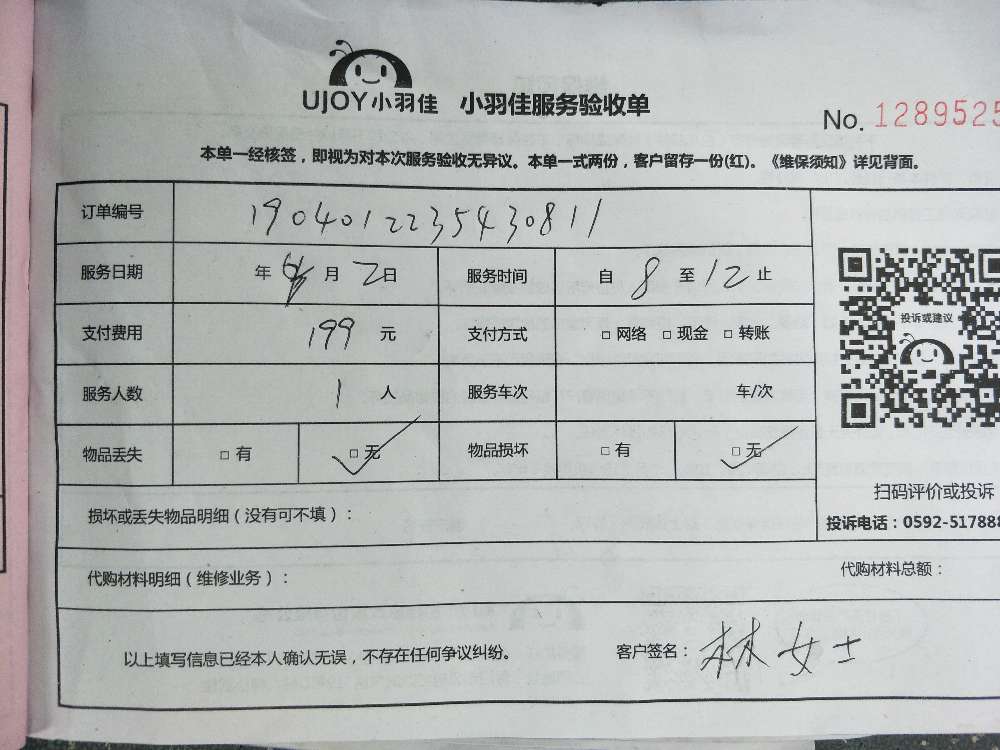 UJOY小羽佳 小羽佳服务验收单
No. 1289525
本单一经核签，即视为对本次服务验收无异议。本单一式两份，客户留存一份(红)。《维保须知》详见背面。
订单编号 19040122354308 11
服务日期 年 4 月 2 日 服务时间 自 8 至 12 止
投诉或建议
支付费用 199 元 支付方式 □ 网络 □ 现金 □ 转账
服务人数 1 人 服务车次 车/次
物品丢失 □ 有 □ 无 ✓ 物品损坏 □ 有 □ 无 ✓
扫码评价或投诉
损坏或丢失物品明细（没有可不填）：
投诉电话：0592-517888
代购材料明细（维修业务）： 代购材料总额：
以上填写信息已经本人确认无误，不存在任何争议纠纷。 客户签名： 林女士